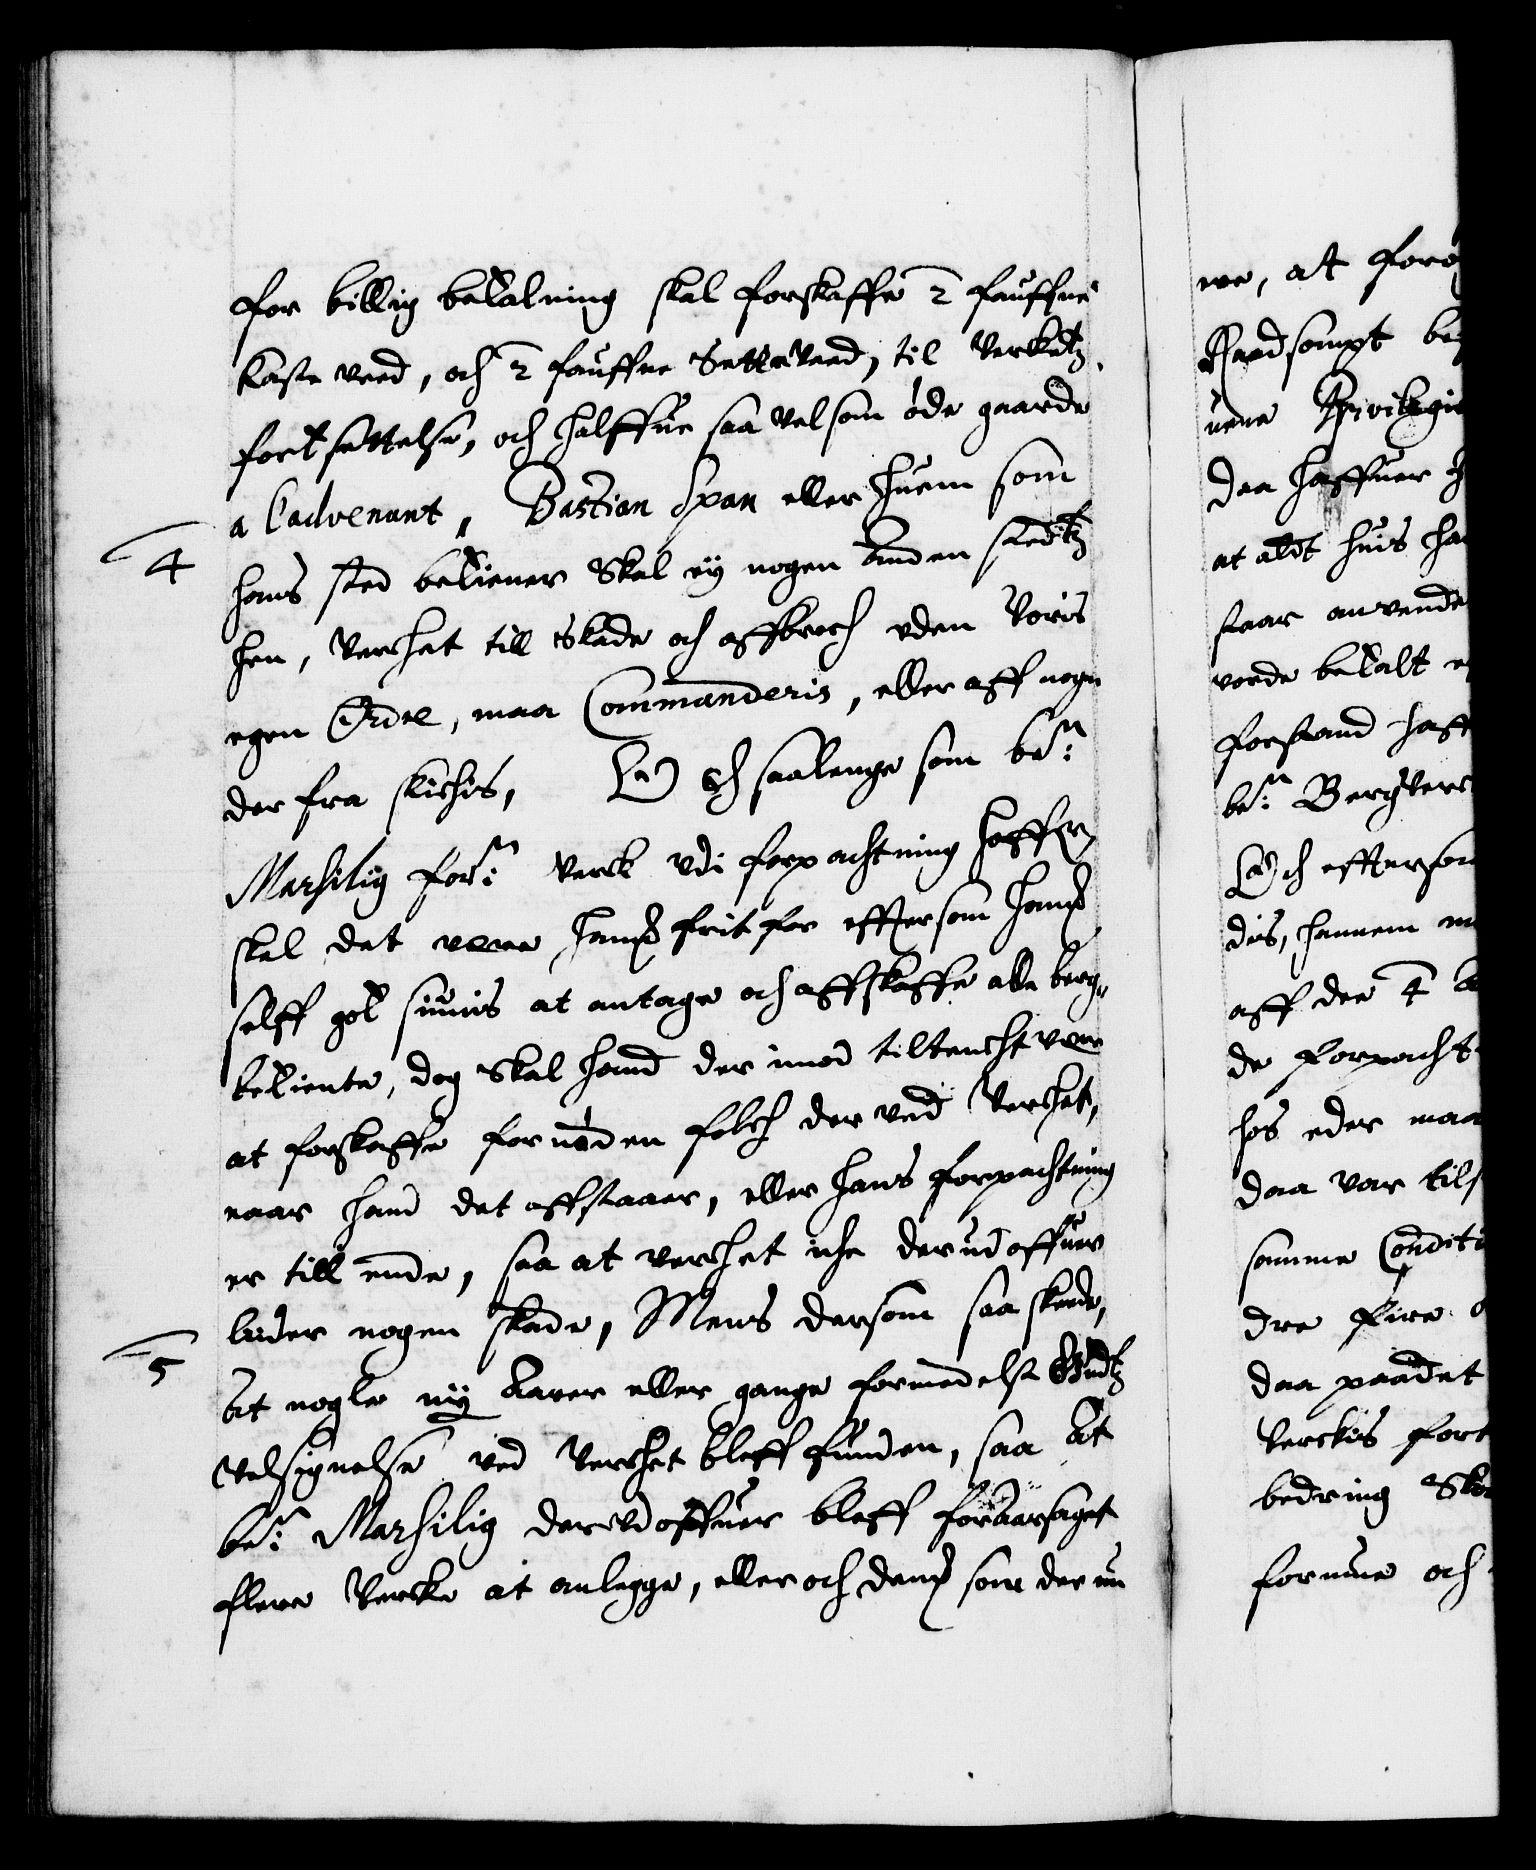 for billig betalning skal forskaffe 2 fauffne
kaste veed, och 2 fauffne Setteveed, til Verketz
fortsettelse, och halffue saa vel som öde gaarde
a l'advenant, Bastian Span eller huem som
4
hans sted betiener Skal ey nogen anden stedtz
hen, Verchet till Skade och affbroch uden Voris
egen Ordre, maa Commanderis, eller aff nogen
der fra skichis, Och saalenge som bem:te
Marsilig for:ne Verck udi forpachtning haffr
skal det vere hannd frit for eftersom hannd
selff got siunis at antage och affskaffe alle berg-
betiente, dog Skal hand der imod tiltencht vere
at forskaffe fornöden folch der ved Verchet,
naar hand det affstaaer, eller hans forpachtning
er till ende, saa at verchet iche derudoffuer
lider nogen skade, Mens dersom saa skeede,
5
At nogle ny Aarer eller gange formedelst Gudtz
velsignelse ved Verchet bleff funden, saa At
be:te Marsilig derudoffuer bleff foraarsaget
flere Vercke at anlegge, eller och dend som der nu
re, at for
Raadsompt be
uene Privilegi
daa haffuer
at aldt huis ha
staar anvende
vorde betalt
forstand haff
be:te Bergverc
Och eftersom
dis, hannem
aff dee 4
de forpacht
hos eder maa
daa var tils
samme Condit
dre fire
daa paa det
Verckis fort
bedring Ska
formue och